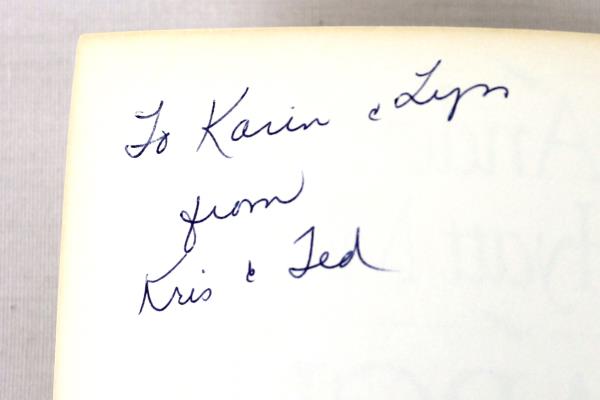 To Karin & Lyn
from
Kris & Ted